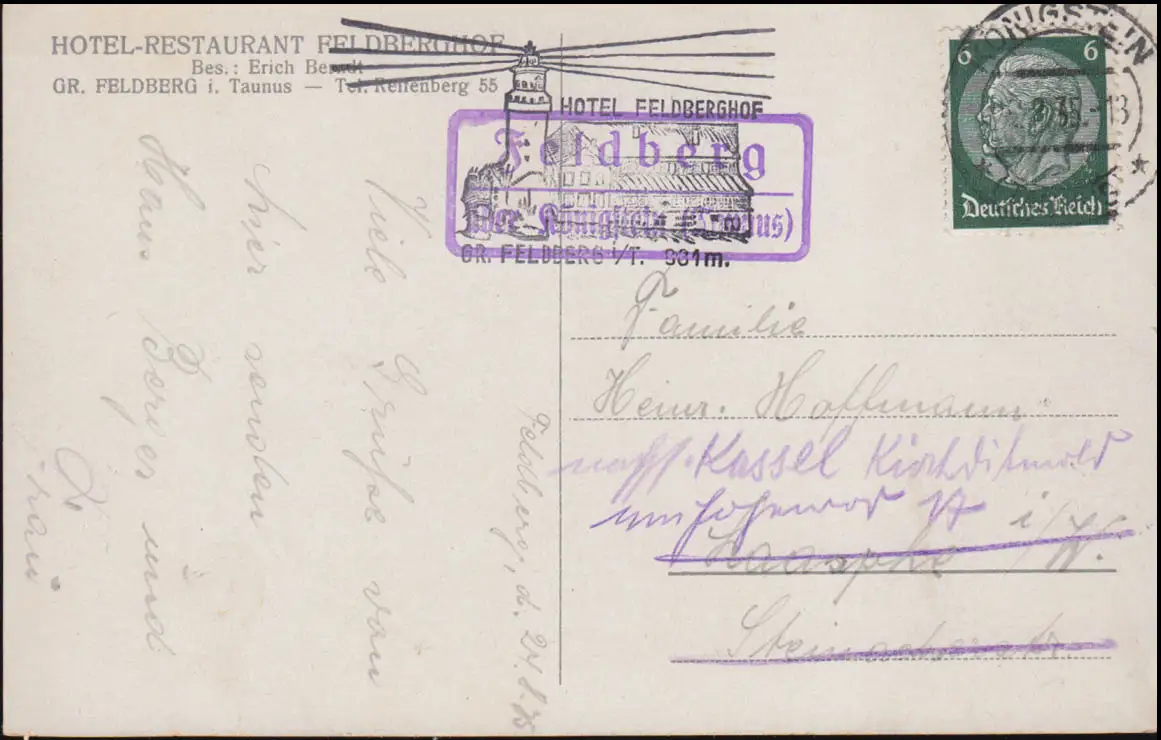 HOTEL-RESTAURANT FELDBERGHOF
Bes.: Erich
GR. FELDBERG i. Taunus — Tel. Reifenberg 55
HOTEL FELDBERGHOF
Feldberg
über Königstein (Taunus)
GR. FELDBERG i/T. 881m.
KÖNIGSTEIN
35.-13
6 6
Deutsches Reich
Feldberg, d. 24.8.35
Viele Grüße von
hier senden
Hans Berger und
Frau
Familie
Heinr. Hoffmann
Kassel Kirchditmold
Laasphe i/W.